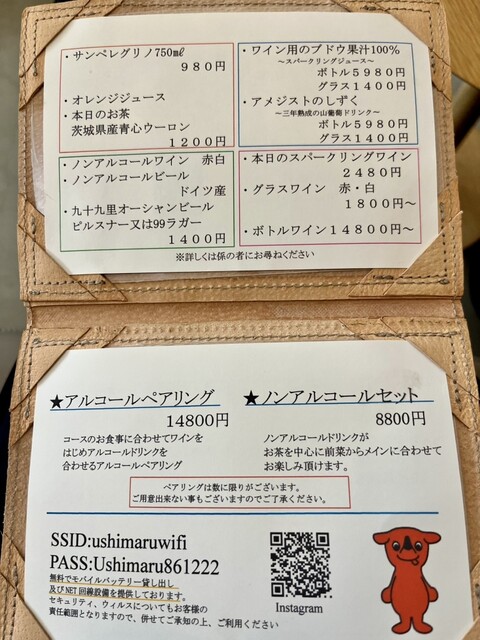 ・サンペレグリノ750㎖
980円
・オレンジジュース
・本日のお茶
茨城県産青心ウーロン
1200円
・ワイン用のブドウ果汁100%
～スパークリングジュース～
ボトル5980円
グラス1400円
・アメジストのしずく
～三年熟成の山葡萄ドリンク～
ボトル5980円
グラス1400円
・ノンアルコールワイン 赤白
・ノンアルコールビール
ドイツ産
・九十九里オーシャンビール
ピルスナー又は99ラガー
1400円
・本日のスパークリングワイン
2480円
・グラスワイン 赤・白
1800円～
・ボトルワイン14800円～
※詳しくは係の者にお尋ねください
★アルコールペアリング
14800円
コースのお食事に合わせてワインを
はじめアルコールドリンクを
合わせるアルコールペアリング
★ノンアルコールセット
8800円
ノンアルコールドリンクが
お茶を中心に前菜からメインに合わせて
お楽しみ頂けます。
ペアリングは数に限りがございます。
ご用意出来ない事もございますのでご了承ください。
SSID:ushimaruwifi
PASS:Ushimaru861222
無料でモバイルバッテリー貸し出し
及びNET回線設備を提供しております。
セキュリティ、ウィルスについてもお客様の
責任範囲となりますので、併せてご承知の上、ご利用ください
Instagram